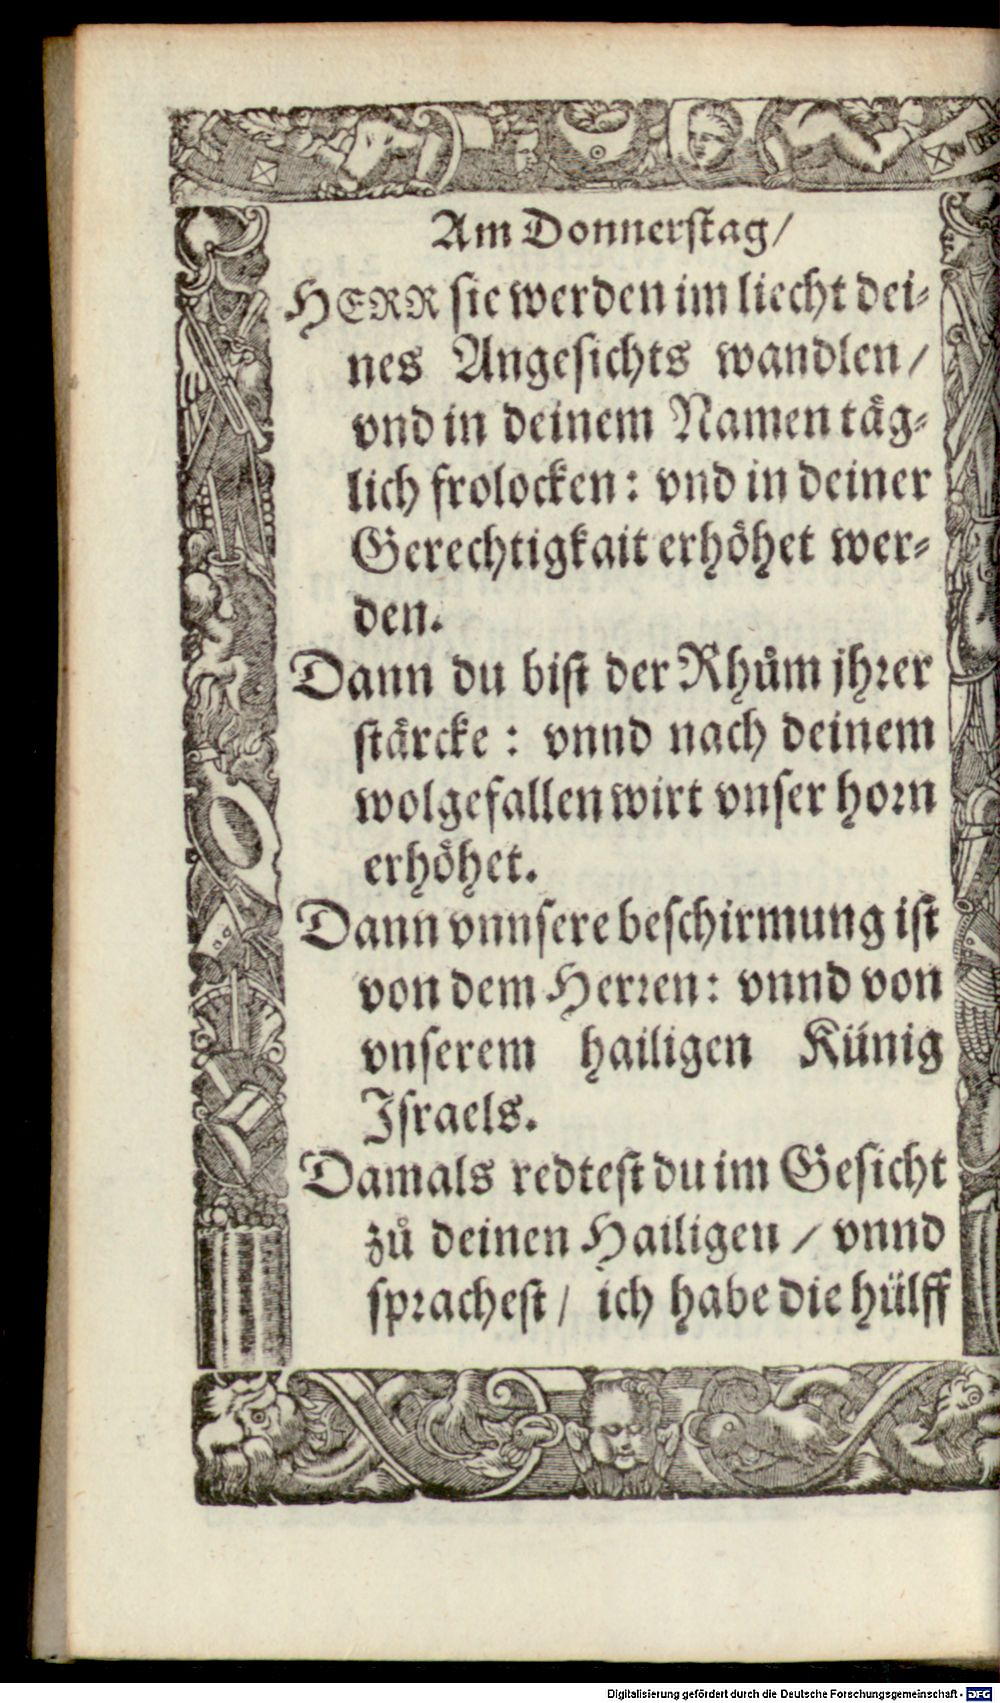 Am Donnerstag/
HERR sie werden im liecht dei-
nes Angesichts wandlen/
vnd in deinem Namen täg-
lich frolocken: vnd in deiner
Gerechtigkait erhöhet wer-
den.
Dann du bist der Rhům jhrer
stärcke: vnnd nach deinem
wolgefallen wirt vnser horn
erhöhet.
Dann vnnsere beschirmung ist
von dem Herren: vnnd von
vnserem hailigen Künig
Israels.
Damals redtest du im Gesicht
zů deinen Hailigen/ vnnd
sprachest/ ich habe die hülff
Digitalisierung gefördert durch die Deutsche Forschungsgemeinschaft - DFG